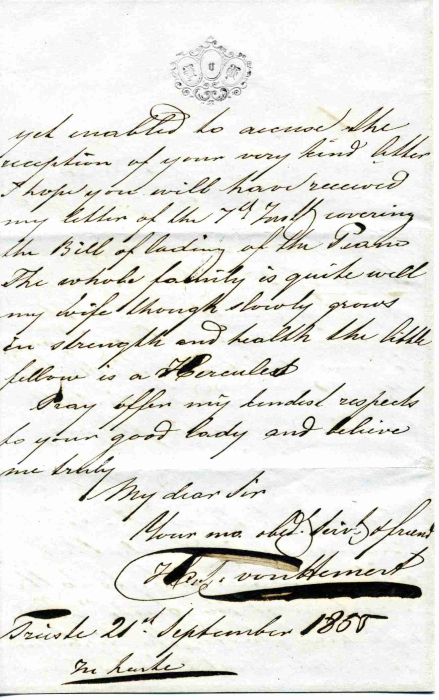 yet enabled to accuse the
reception of your very kind letter
I hope you will have received
my letter of the 7th Inst covering
the Bill of lading of the Piano
The whole family is quite well
my wife though slowly grows
in strength and health the little
fellow is a Hercules
Pray offer my kindest respects
to your good lady and believe
me truly
My dear Sir
Your mo. obed. Servt. & friend
von Hemert
Trieste 21st September 1850
In haste